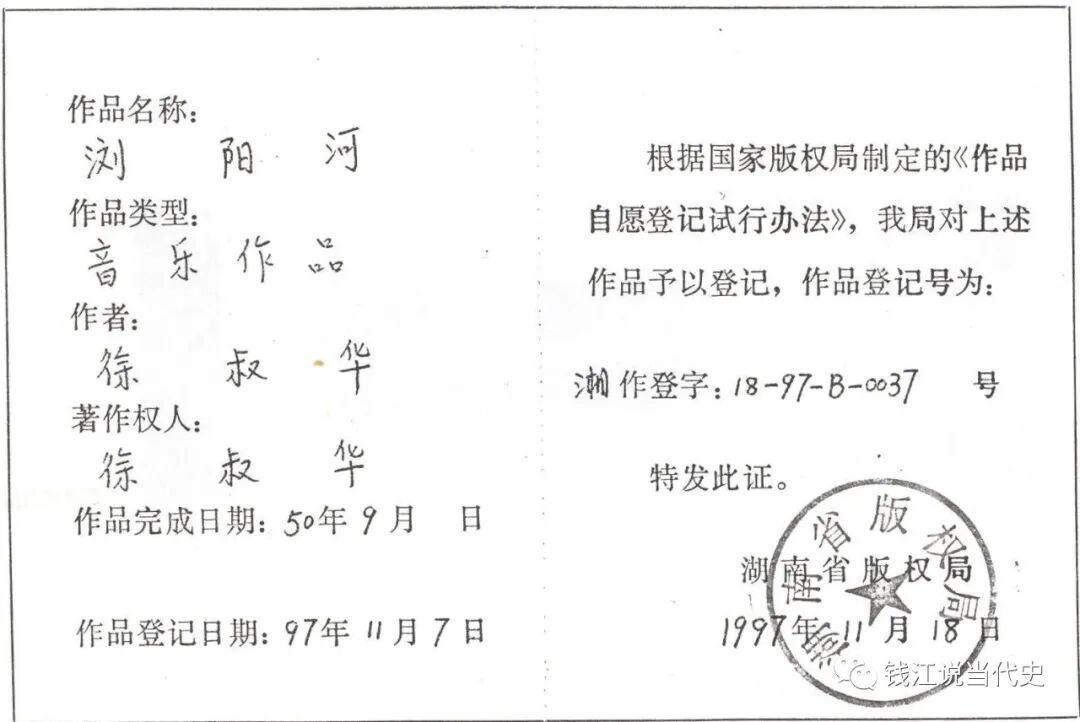 作品名称:
浏 阳 河
作品类型:
音 乐 作 品
作者:
徐 叔 华
著作权人:
徐 叔 华
作品完成日期: 50年 9 月 日
作品登记日期: 97年 11 月 7 日
根据国家版权局制定的《作品
自愿登记试行办法》,我局对上述
作品予以登记,作品登记号为:
湘作登字: 18-97-B-0037 号
特发此证。
湖南省版权局
1997年 11 月 18 日
湖南省版权局
钱江说当代史